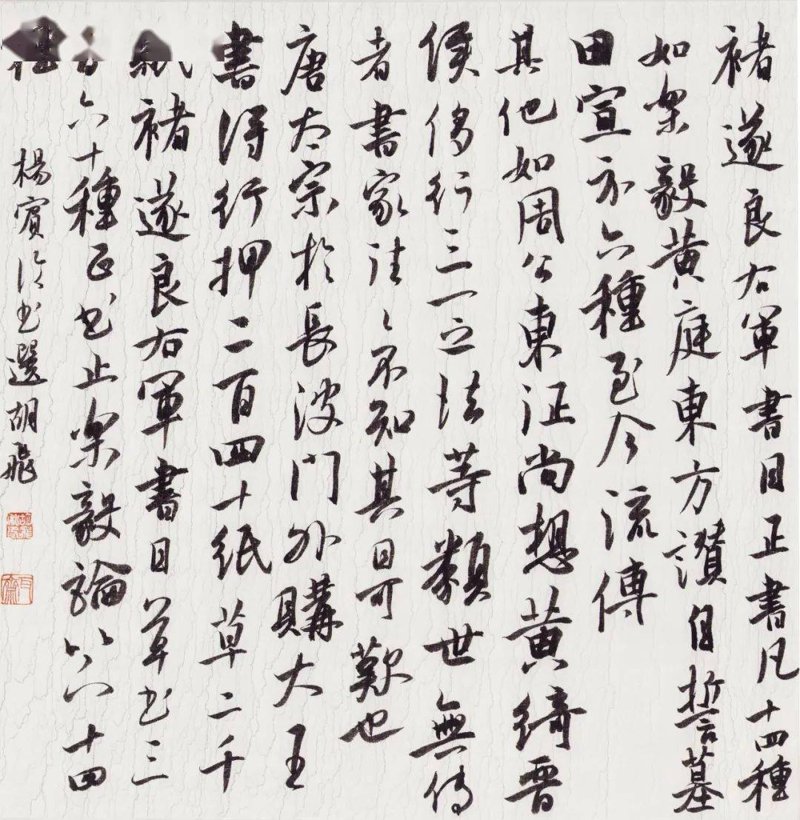 褚遂良右軍書目正書凡十四種
如樂毅黃庭東方讚自誓墓
田宣示六種至今流傳
其他如周公東征尚想黃綺晉
侯侈行三一之法等類世無傳
者書家往々不知其目可歎也
唐太宗於長波門外購大王
書得行押二百四十紙草二千
紙褚遂良右軍書目草书三
百六十種正书止樂毅論以下十四
種
楊賓论书選胡飛